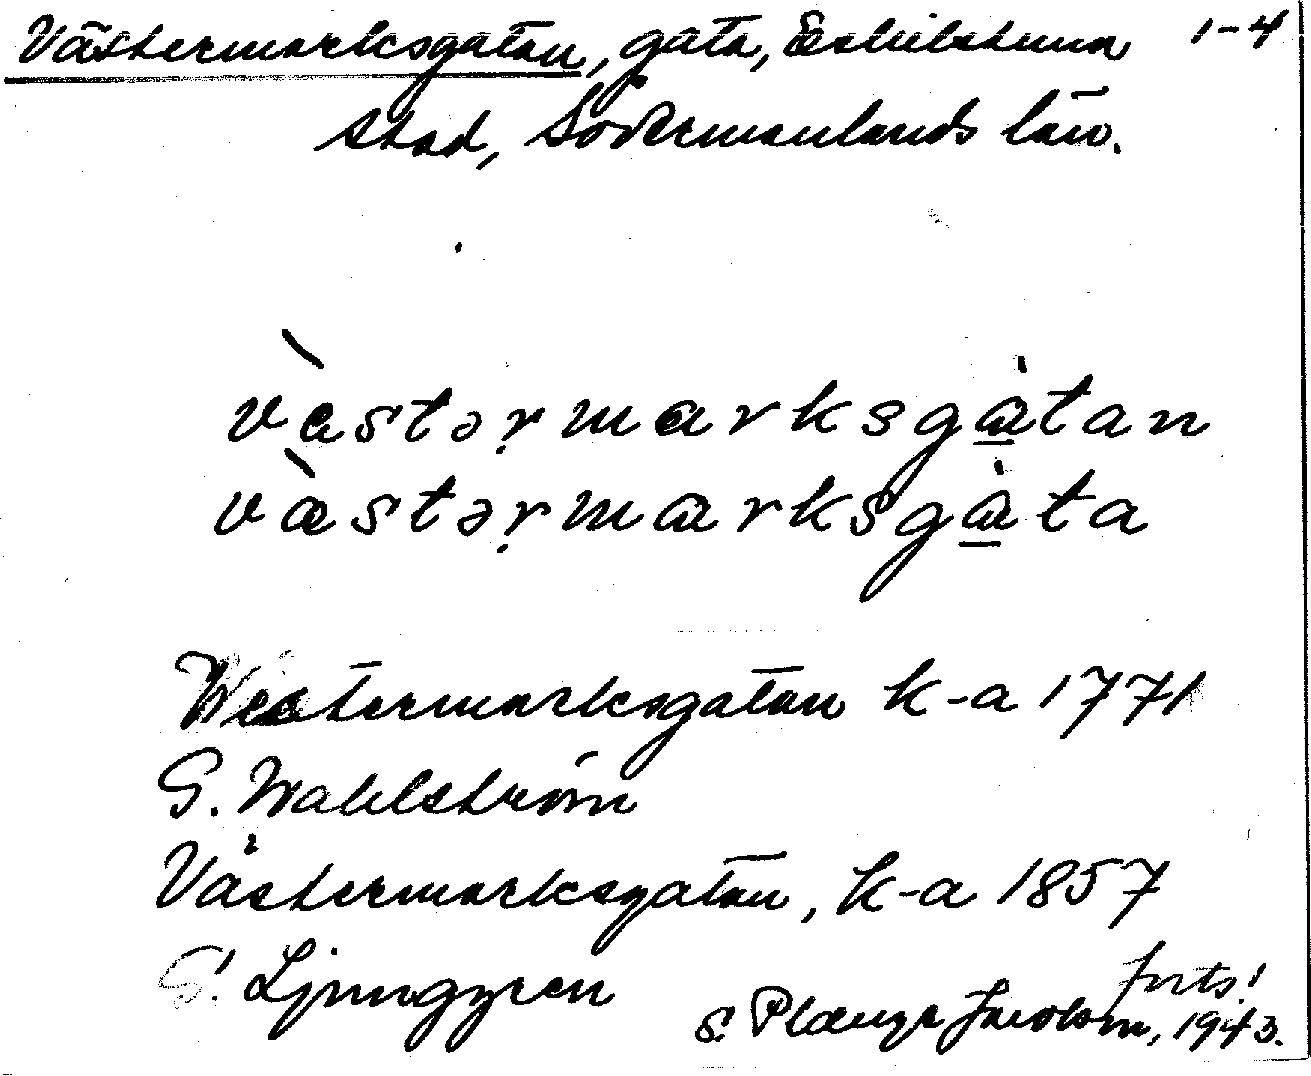 Västermarksgatan, gata, Eskilstuna 1-4
stad, Södermanlands län.
vàstəṛmarksgàtan
vàstəṛmarksgàta
Westermarksgatan k-a 1771
G. Wahlström
Västermarksgatan, k-a 1857
G. Ljunggren
forts!
S. Plænge Jacobson, 1943.